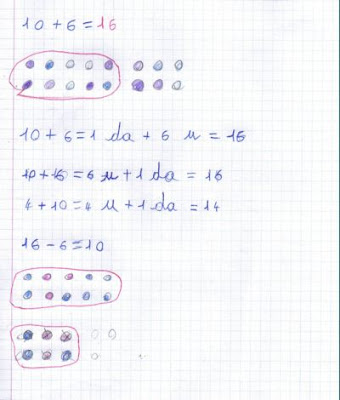 10 + 6 = 16
10 + 6 = 1 da + 6 u = 16
10 + 16 = 6 u + 1 da = 16
4 + 10 = 4 u + 1 da = 14
16 - 6 = 10